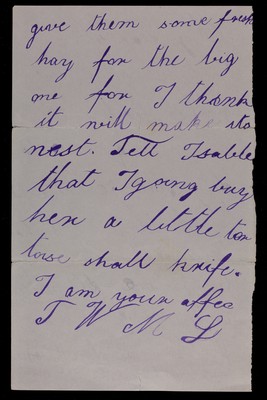 give them some fresh
hay for the big
one for I thank
it will make its
nest. Tell Isable
that I going buy
her a little tor
toise shall knife.
I am your affec
J W M L